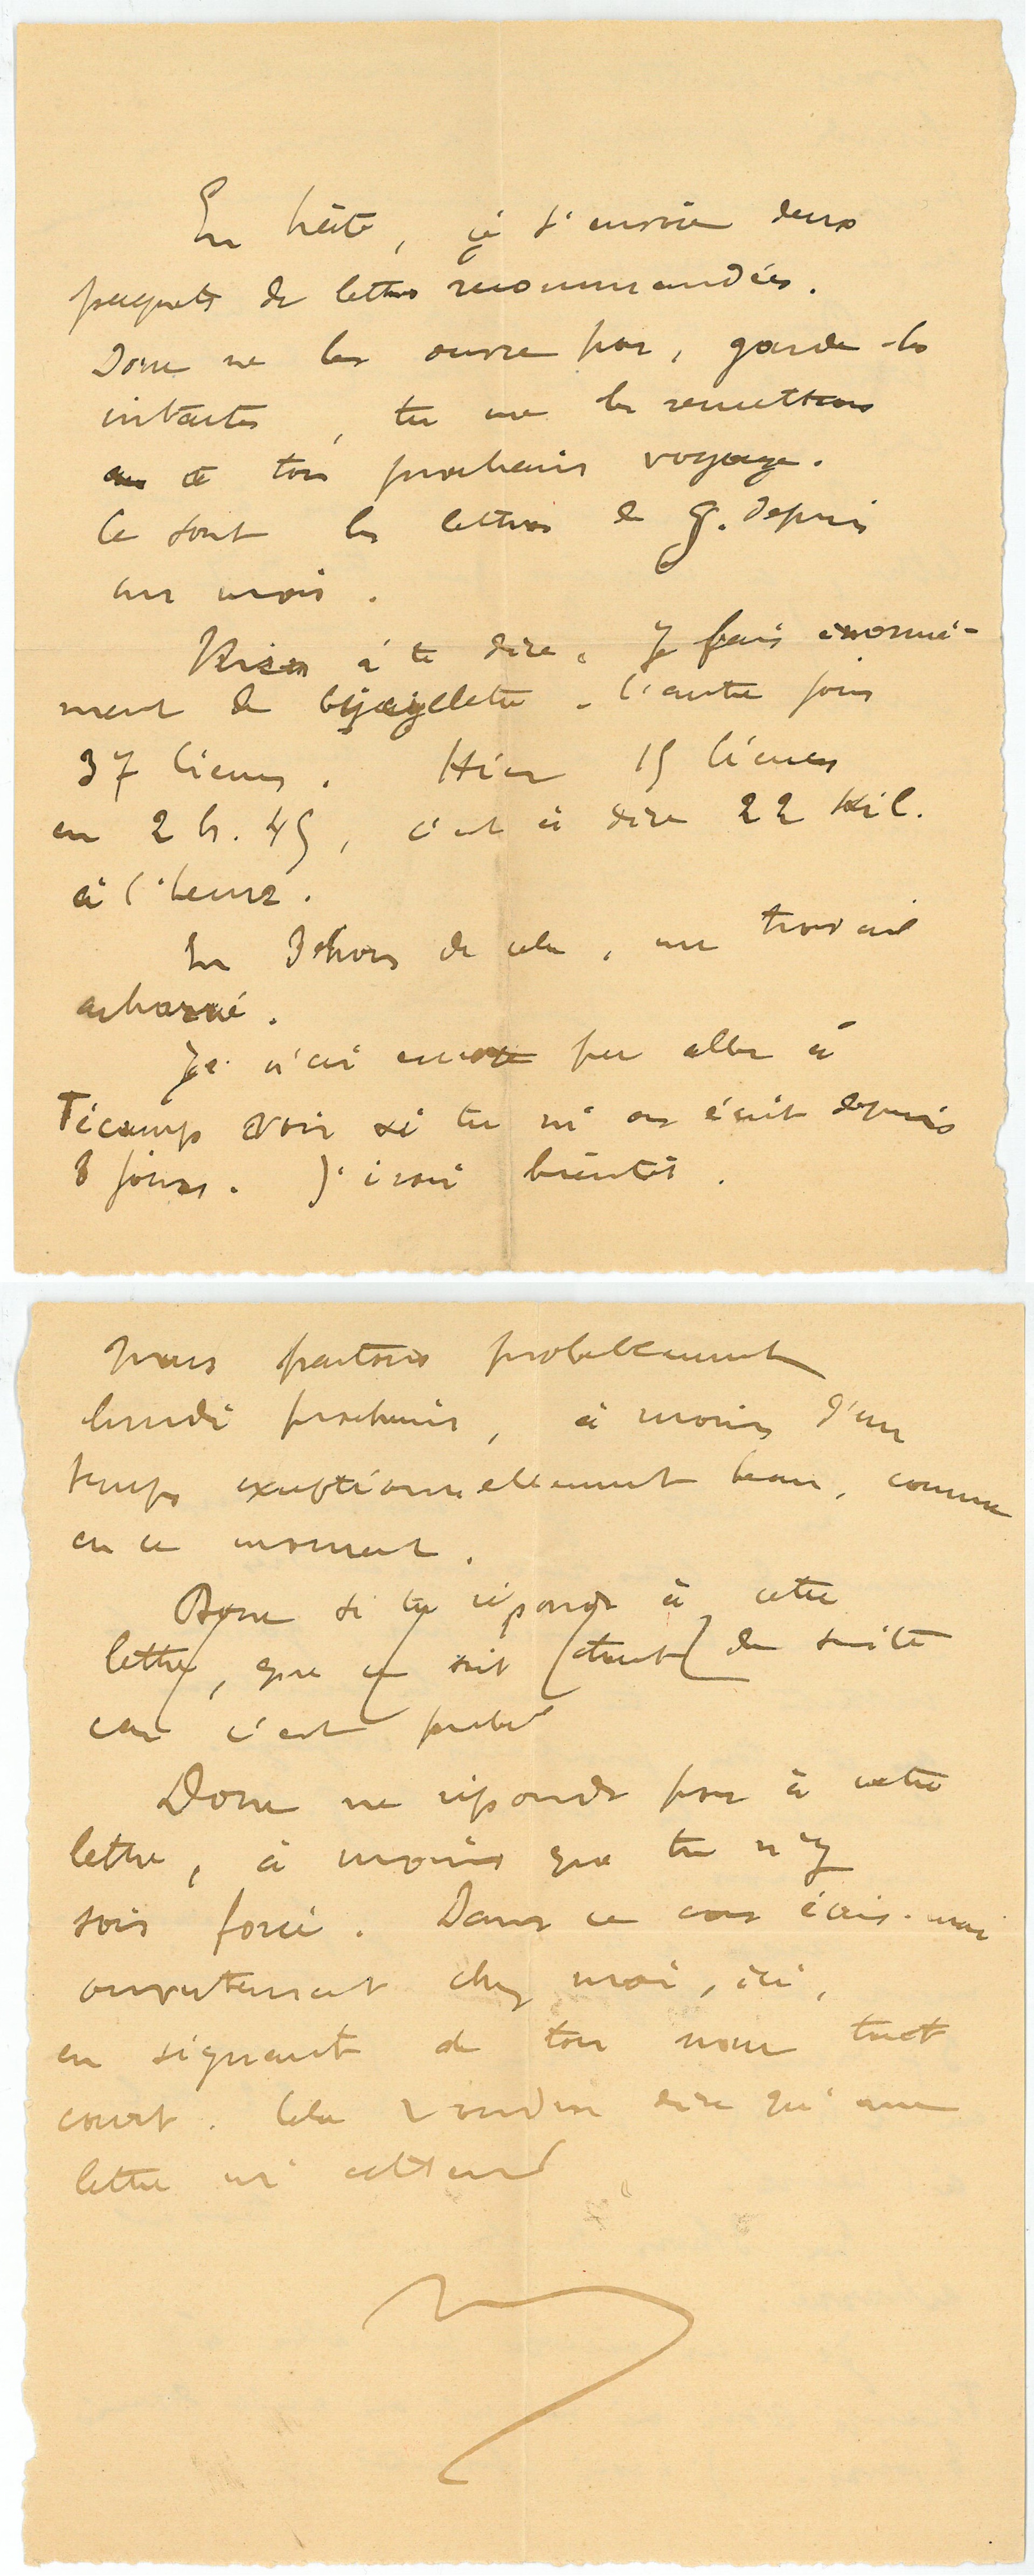 En hâte, je t'envoie deux
paquets de lettres recommandées.
Donc ne les ouvre pas, garde-les
intactes, tu me les remettras
à ton prochain voyage.
Ce sont les lettres de G. depuis
un mois.
Rien à te dire. Je fais énormé-
ment de bicyclette. L'autre jour
37 lieues. Hier 15 lieues
en 2 h. 45, c'est à dire 22 kil.
à l'heure.
En dehors de cela, un travail
acharné.
Je n'ai encore pu aller à
Fécamp voir si tu m'as écrit depuis
8 jours. J'irai bientôt.
Nous partons probablement
lundi prochain, à moins d'un
temps exceptionnellement beau, comme
en ce moment.
Donc si tu réponds à cette
lettre, que ce soit tout de suite
car c'est probabl
Donc ne réponds pas à cette
lettre, à moins que tu n'y
sois forcé. Dans ce cas écris-moi
ouvertement chez moi, ici,
en signant de ton nom tout
court. Cela voudra dire qu'une
lettre m'attend